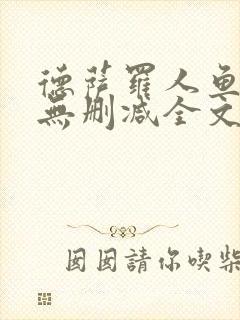 德萨罗人鱼
無删减全文
囡囡請你喫柴